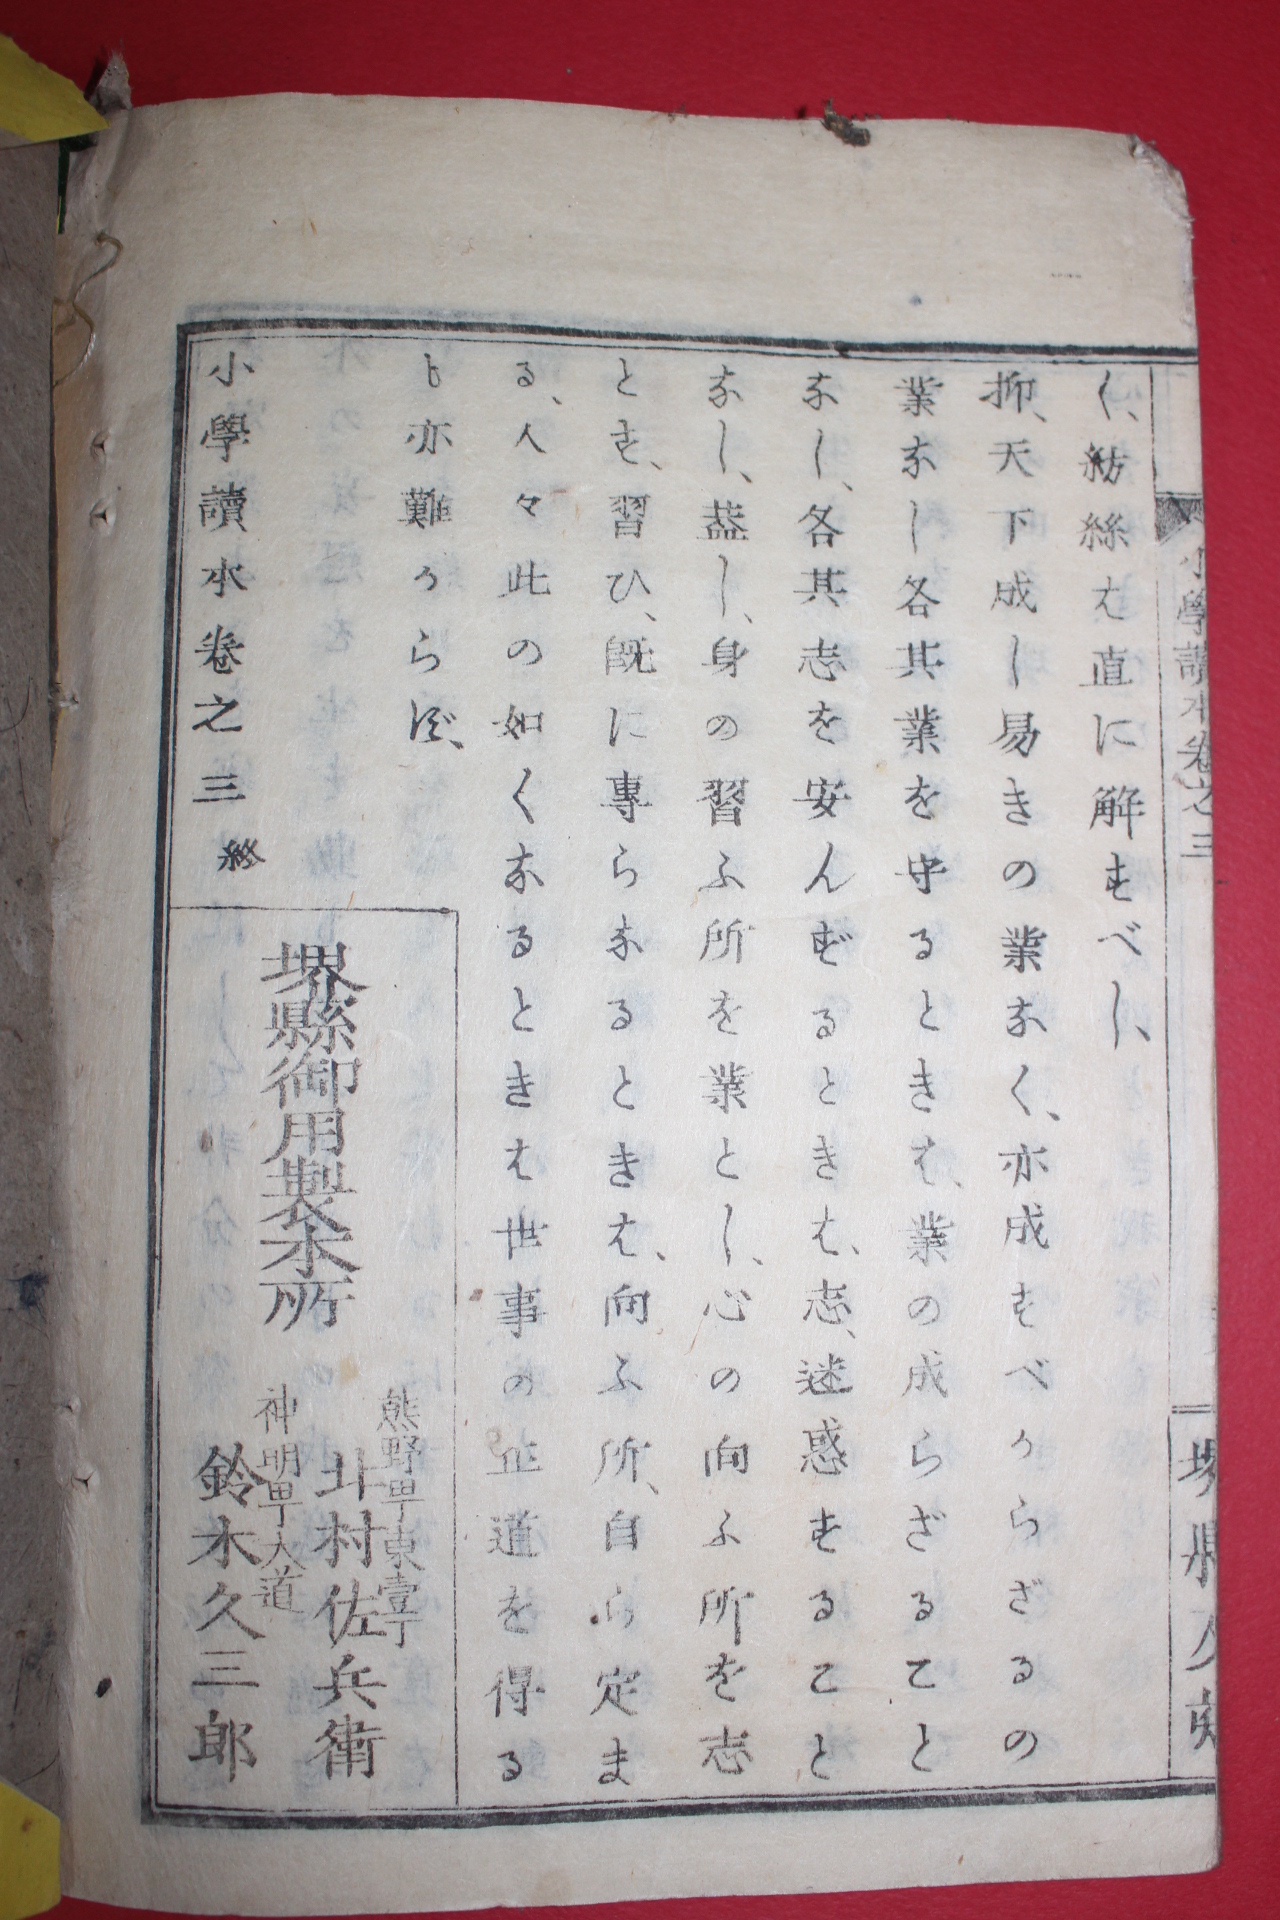 小學讀本卷之三
堺縣
く、紡絲は直に解すべし、
抑、天下成し易きの業なく、亦成すべからざるの
業なし各其業を守るときは、業の成らざること
なし、各其志を安んずるときは、志、迷惑すること
なし、蓋し、身の習ふ所を業とし、心の向ふ所を志
とす、習ひ、既に專らなるときは、向ふ所、自ら定ま
る、人々此の如くなるときは世事の正道を得る
も亦難からず、
小學讀本卷之三終
堺縣御用製本所
熊野甼東壹丁
北村佐兵衛
神明甼大道
鈴木久三郎